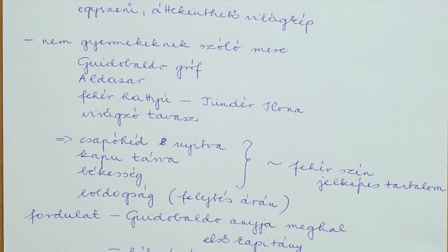 egyszerű, áttekinthető világkép
- nem gyermekeknek szóló mese
Guidobaldo gróf
Aldazar
fehér hattyú - Tündér Ilona
virágzó tavasz
=> csapóhíd nyitva
kapu tárva
békesség
boldogság (felejtés árán)
~ fehér szín
jelképes tartalom
fordulat - Guidobaldo anyja meghal
első kapitány